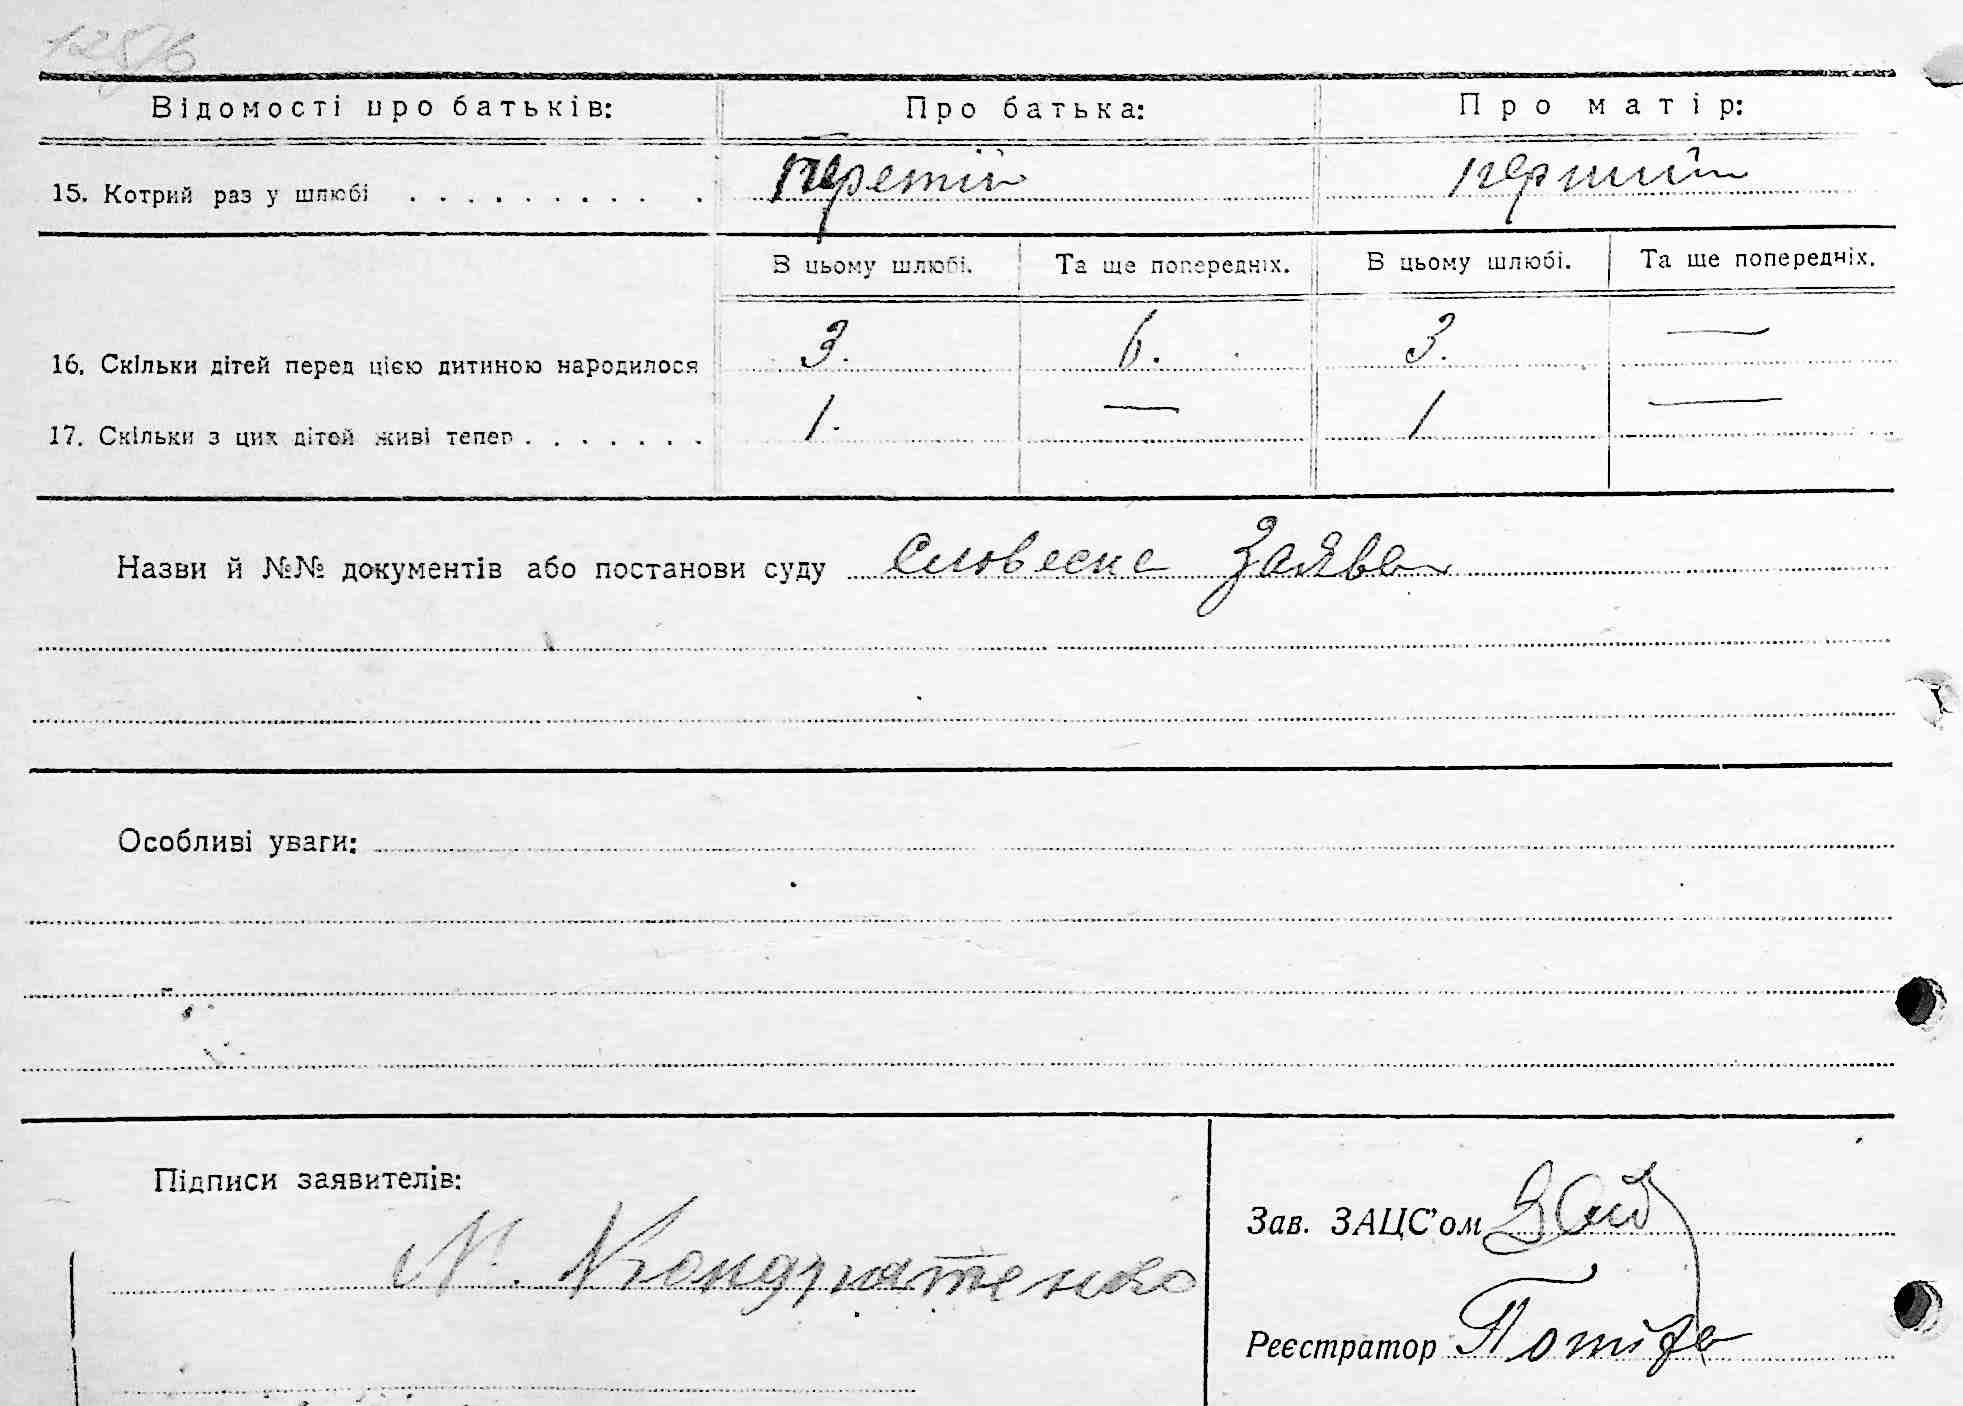 125/6
Відомості про батьків: Про батька: Про матір:
15. Котрий раз у шлюбі третій перший
В цьому шлюбі. Та ще попередніх. В цьому шлюбі. Та ще попередніх.
16. Скільки дітей перед цією дитиною народилося 3. 6. 3. —
17. Скільки з цих дітей живі тепер 1. — 1 —
Назви й №№ документів або постанови суду словесна Заява
Особливі уваги:
Підписи заявителів:
Зав. ЗАЦС'ом
N. Кондратенко
Реєстратор